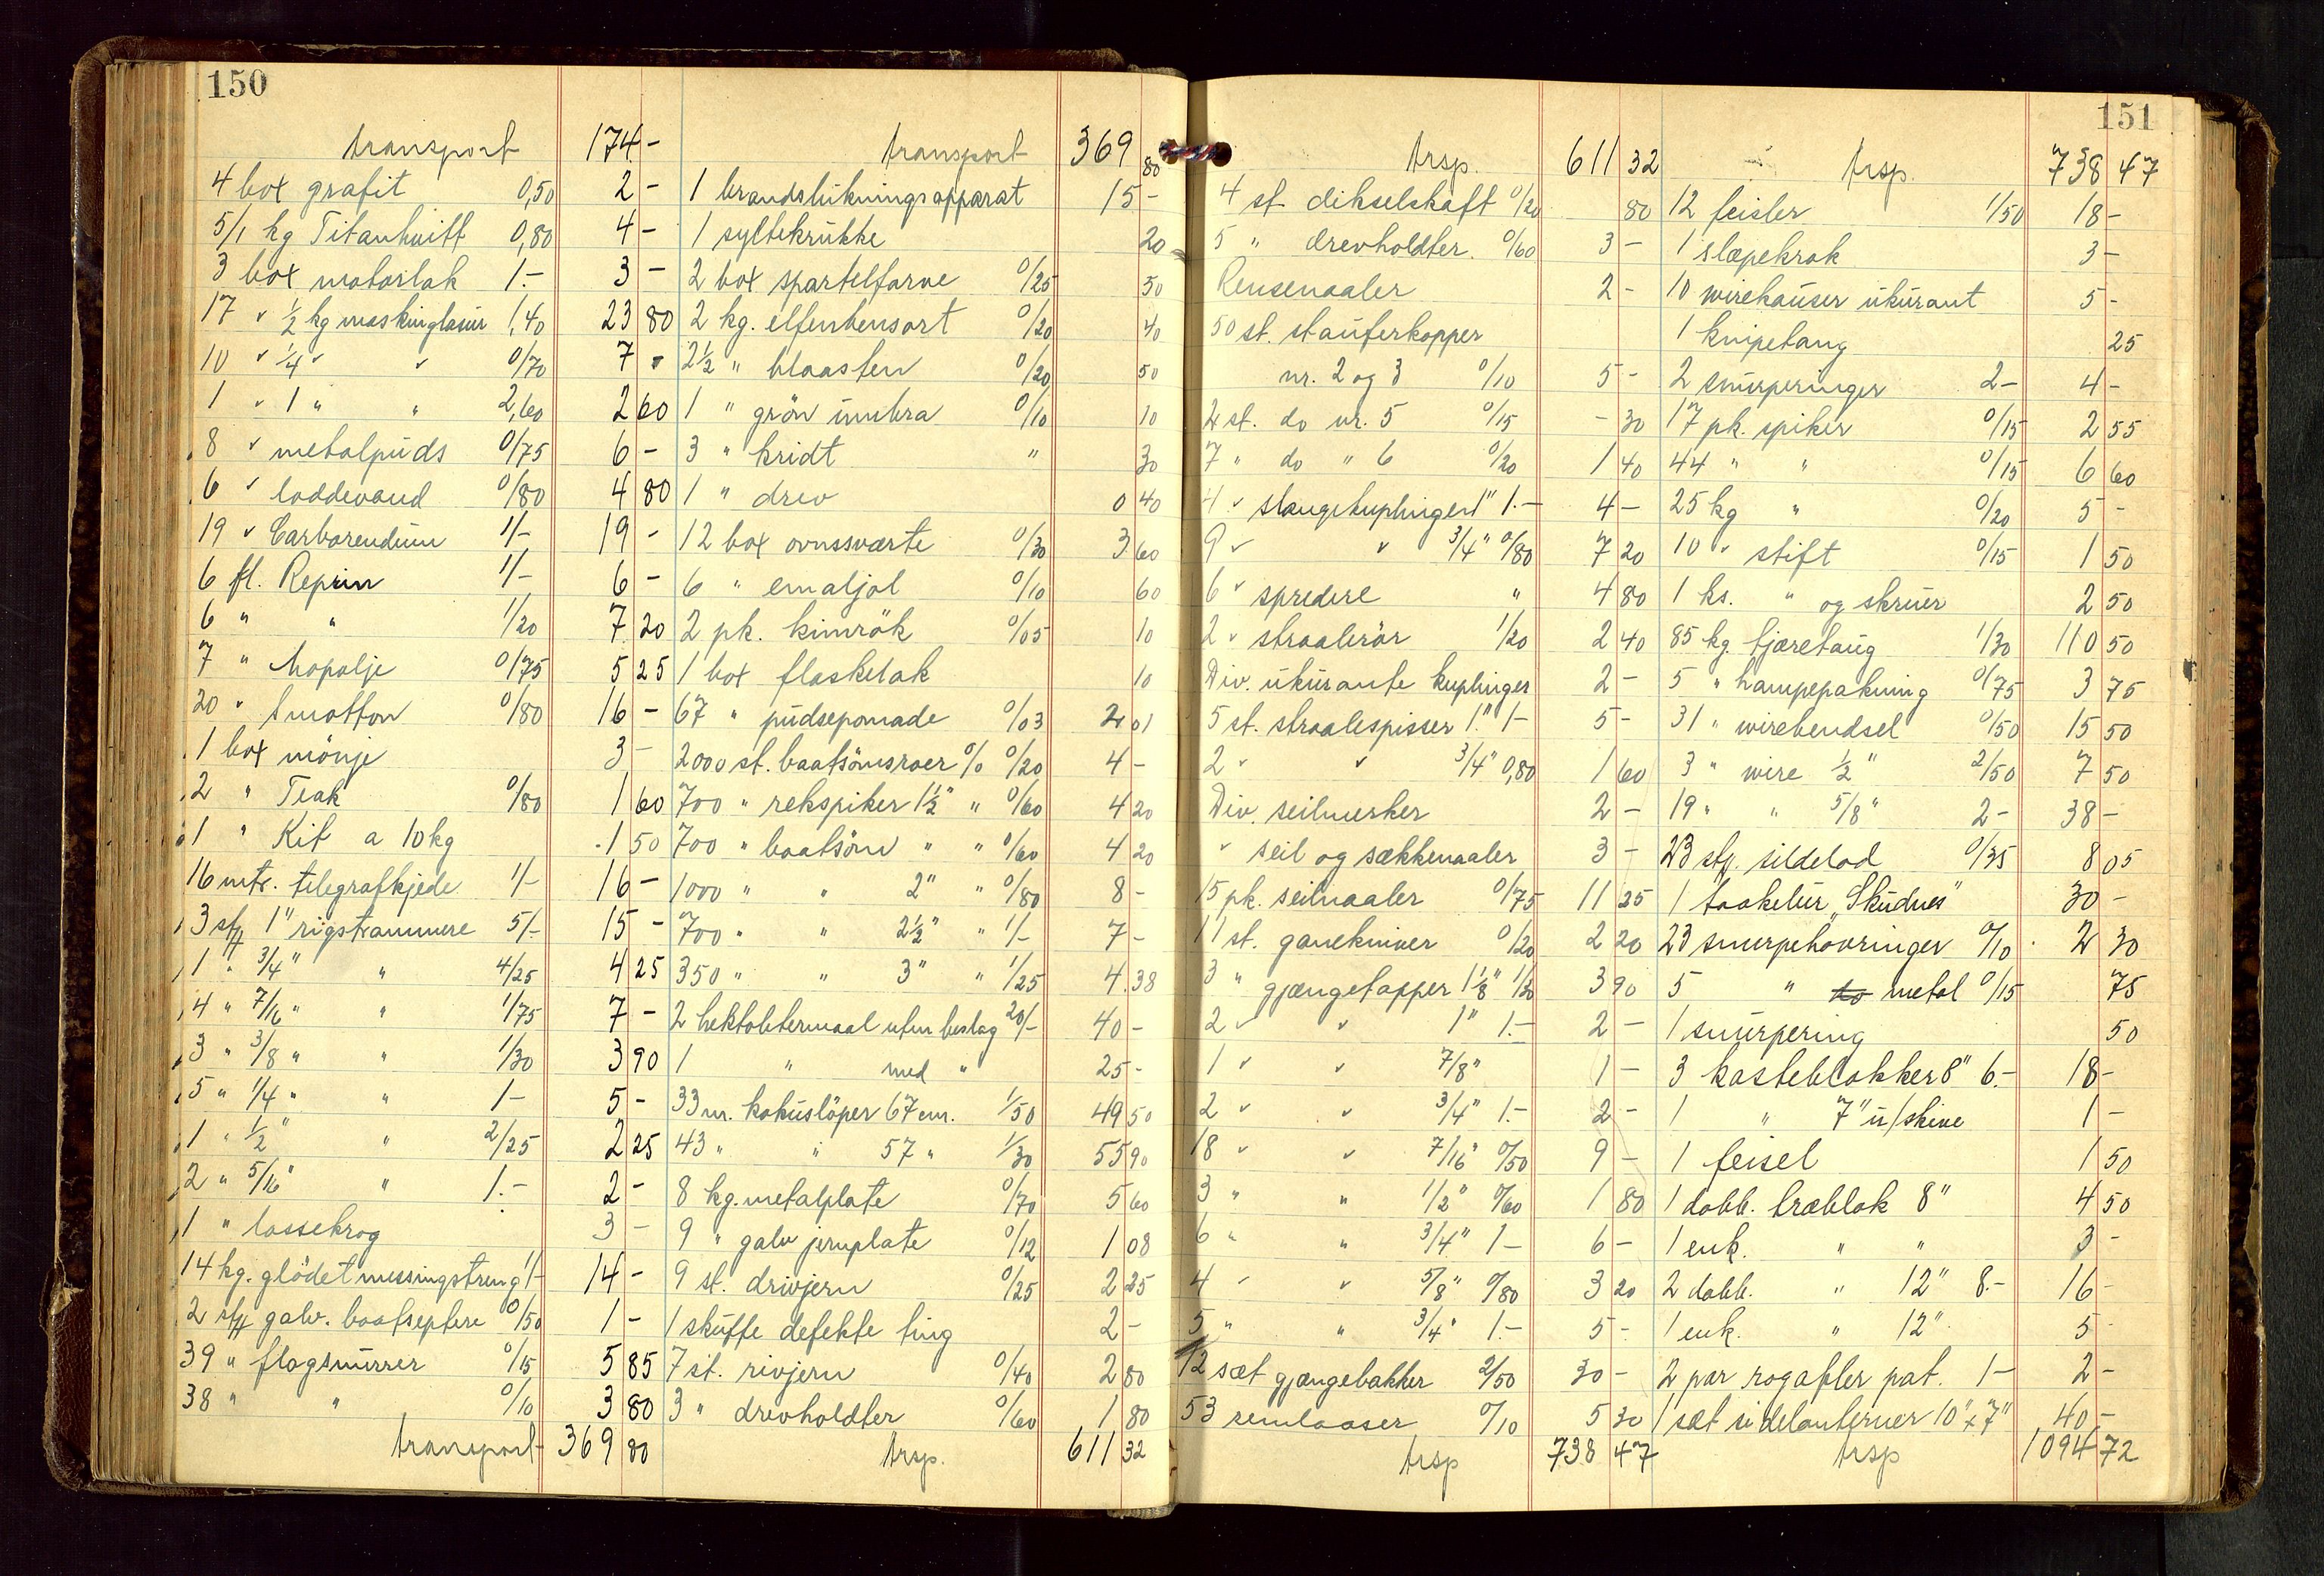 150
transport 174 -
4 box grafit 0,50 2 -
5/1 kg Titanhvitt 0,80 4 -
3 box motorlak 1.- 3 -
17 " ½ kg maskinglasur 1,40 23 80
10 " ¼ " " 0/70 7 -
1 " 1 " " 2,60 2 60
8 " metalpuds 0/75 6 -
6 " loddevand 0/80 4 80
19 " Carborendum 1/- 19 -
6 fl. Reprin 1/- 6 -
6 " " 1/20 7 20
7 " Mopolje 0/75 5 25
20 " 0/80 16 -
1 box mönje 3 -
2 " Teak 0/80 1 60
1 " Kit a 10 kg 1 50
16 mtr. telegrafkjede 1/- 16 -
3 stk 1" rigstrammere 5/- 15 -
1 " 3/4" " 4/25 4 25
4 " 7/16" " 1/75 7 -
3 " 3/8" " 1/30 3 90
5 " 1/4" " 1- 5 -
1 " ½" " 2/25 2 25
2 " 5/16" " 1.- 2 -
1 " lassekrog 3 -
14 kg. glödet messingstreng 1/- 14 -
2 stk galv. baatseptere 0/50 1 -
39 " flagsnurrer 0/15 5 85
38 " " 0/10 3 80
transport 369 80
transport 369 80
1 brandslukningsapparat 15 -
1 syltekrukke 20
2 box spartelfarve 0/25 50
2 kg. elfenbensort 0/20 40
2½ " blaasten 0/20 50
1 " grön umbra 0/10 10
3 " kridt " 30
1 " drev 0 40
12 box ovnssværte 0/30 3 60
6 " emaljol 0/10 60
2 pk. kimrök 0/05 10
1 box flaskelak 10
67 " pudsepomade 0/03 2 01
2000 st. baatsömsroer % 0/20 4 -
700 " rekspiker 1½" " 0/60 4 20
700 " baatsöm " " 0/60 4 20
1000 " " 2" " 0/80 8 -
700 " " 2½" " 1/- 7 -
350 " " 3" " 1/25 4.38
2 hektolitermaal uten beslag 20/- 40 -
1 " med " 25 -
33 m. kokuslöper 67 cm. 1/50 49 50
43 " " 57 " 1/30 55 90
8 kg. metalplate 0/70 5 60
9 " galv jernplate 0/12 1 08
9 st. drivjern 0/25 2 25
1 skuffe defekte ting 2 -
7 st. rivjern 0/40 2 80
3 " drevholdter 0/60 1 80
trsp. 611 32
151
trsp. 611 32
4 st. dikselskaft 0/20 80
5 " drevholdter. 0/60 3 -
Rensenaaler 2 -
50 st. stauferkopper
nr. 2 og 3 0/10 5 -
2 st. do nr. 5 0/15 - 30
7 " do " 6 0/20 1 40
4 " slangekuplinger 1" 1.- 4 -
9 " " 3/4" 0/80 7 20
6 " spredere " 4 80
2 " straalerör 1/20 2 40
Div. ukurante kuplinger 2 -
5 st. straalespisser 1." 1- 5 -
2 " " 3/4" 0,80 1 60
Div. seilmerker 2 -
" seil og sækkenaaler 3 -
15 pk. seilnaaler 0/75 11 25
11 st. ganekniver 0/20 2 20
3 " gjængetapper 1 1/8" 1/30 3 90
2 " " 1" 1.- 2 -
1 " " 7/8" 1 -
2 " " 3/4" 1.- 2 -
18 " " 7/16" 0/50 9 -
3 " " 1/2" 0/60 1 80
6 " " 3/4" 1- 6 -
4 " " 5/8" 0/80 3 20
5 " " 3/4" 1.- 5 -
12 sæt gjængebakker 2/50 30 -
53 remlaaser 0/10 5 30
trsp 738 47
trsp. 738 47
12 feisler 1/50 18 -
1 slæpekrok 3 -
10 wirekauser ukurant 5 -
1 knipetang 25
2 snurperinger 2- 4 -
17 pk. spiker 0/15 2 55
44 " " 0/15 6 60
25 kg " 0/20 5 -
10 " stift 0/15 1 50
1 ks. " og skruer 2 50
85 kg. tjæretaug 1/30 110 50
5 " hampepakning 0/75 3 75
31 " wirebendsel 0/50 15 50
3 " wire ½" 2/50 7 50
19 " " 5/8" 2- 38 -
23 stk. sildelod 0/35 8 05
1 taakelur "Skudnes" 30 -
23 snurpehovringer 0/10 2 30
5 " metal 0/15 75
1 snurpering 50
3 kasteblokker 8" 6.- 18 -
1 " 7" u/skive 1 -
1 feisel 1 50
1 dobb. træblok 8" 4 50
1 enk. " " 3 -
2 dobb. " 12" 8.- 16 -
1 enk. " 12" 5 -
2 par rogafler pat. 1- 2 -
1 sæt sidelanterner 10" x 7" 40 -
trsp 1094 72